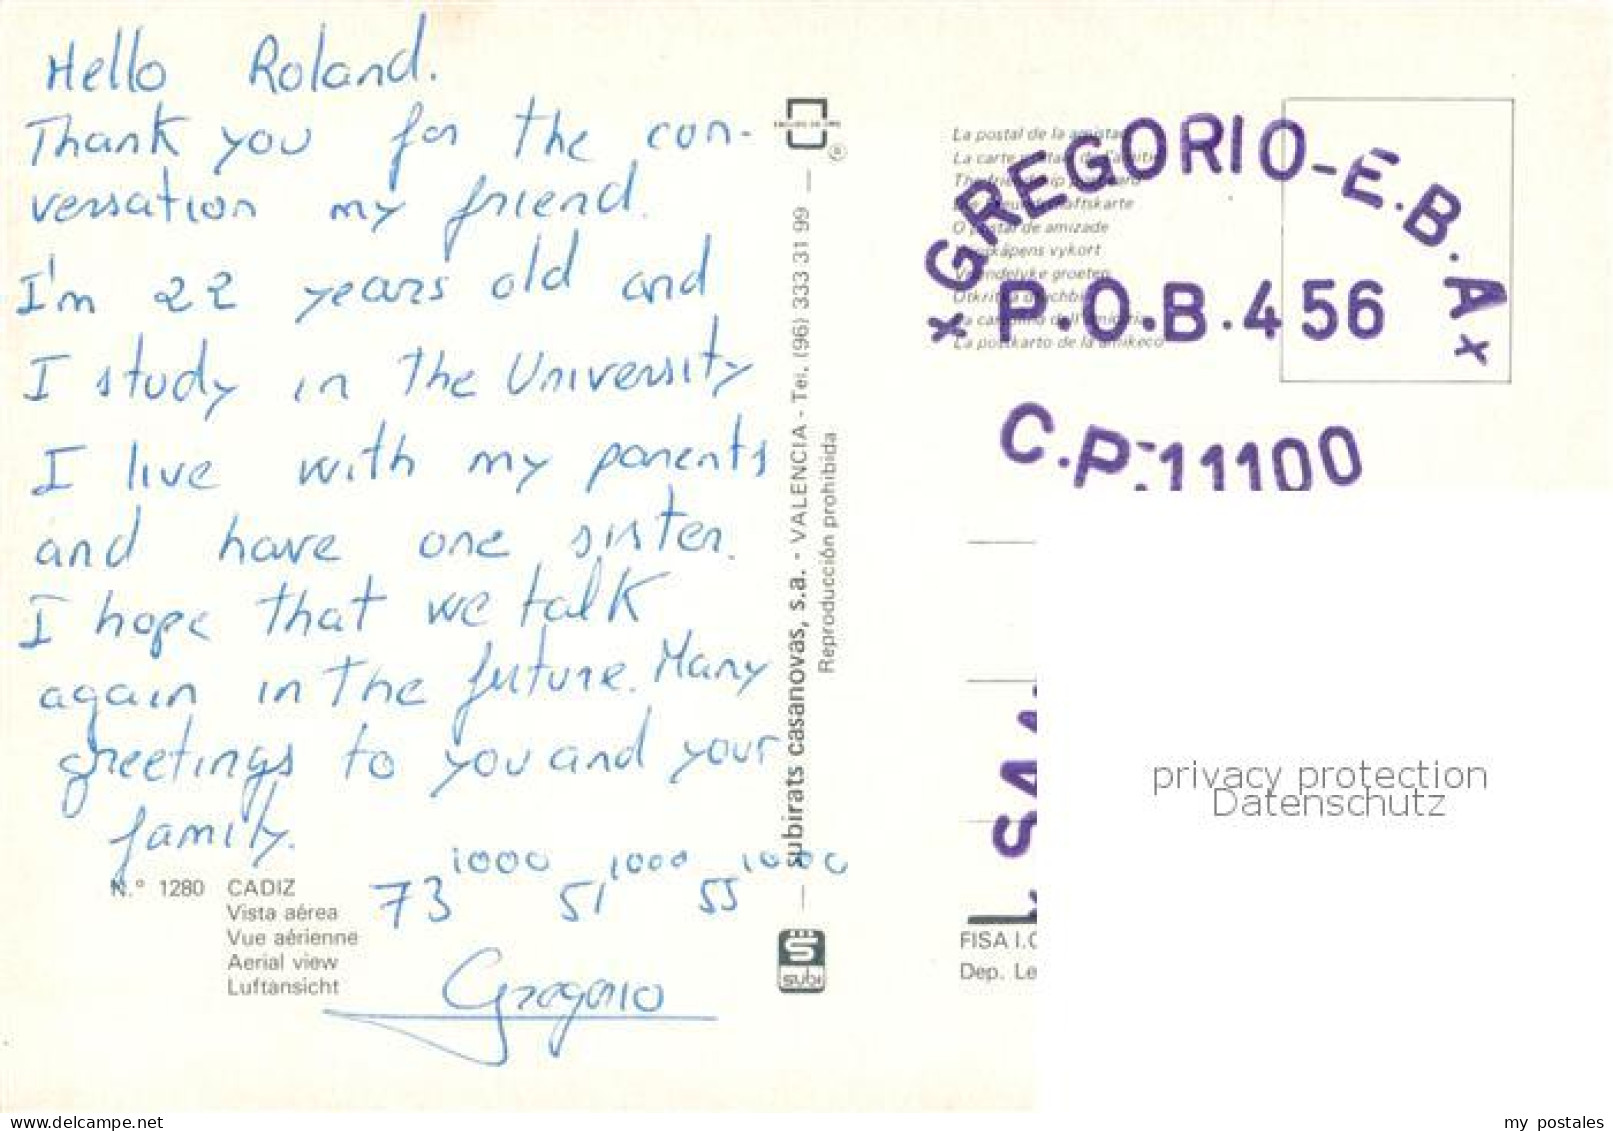 Hello Roland.
Thank you for the con-
versation my friend.
I'm 22 years old and
I study in the University
I live with my parents
and have one sister.
I hope that we talk
again in the future. Many
greetings to you and your
family.
73 1000 51 1000 55 1000
Gregorio
N.° 1280 CADIZ
Vista aérea
Vue aérienne
Aerial view
Luftansicht
subirats casanovas, s.a. - VALENCIA - Tel. (96) 333 31 99
Reproducción prohibida
subi
La postal de la amistad
La carte postale de l'amitié
The friendship postcard
O postal de amizade
vykort
Vriendelyke groeten
Otkritka
La postkarto de la amikeco
x GREGORIO-E.B.A x
P.O.B.456
C.P.:11100
FISA I.
Dep. Le
privacy protection
Datenschutz
delcampe.net
my_postales